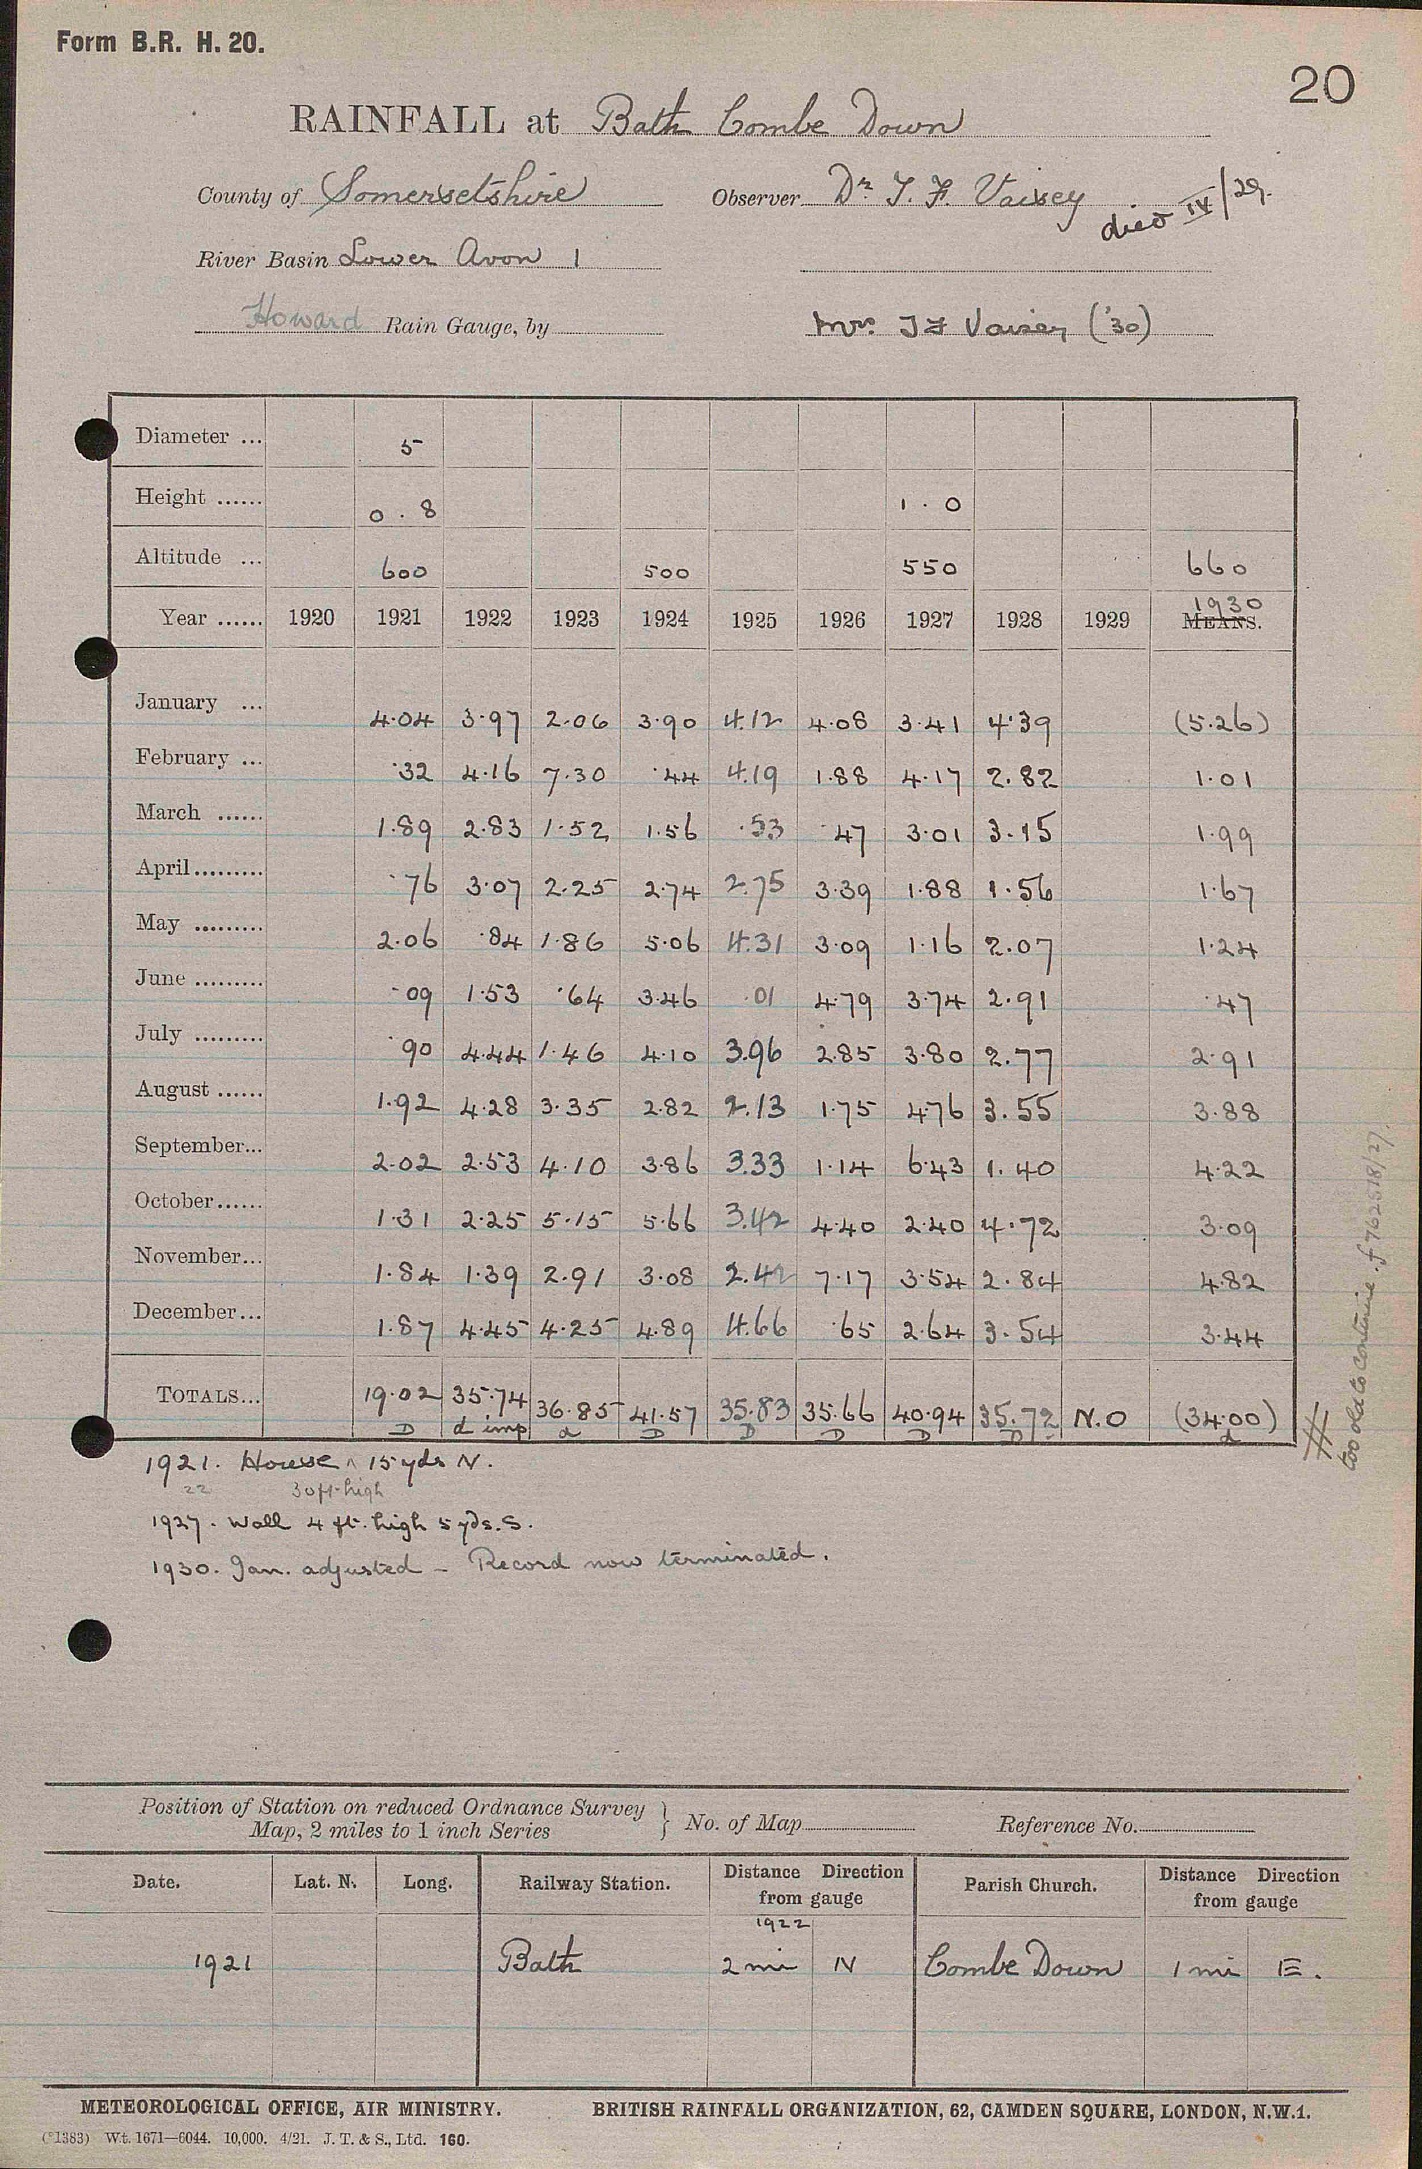 Form B.R. H. 20.
20
RAINFALL at Bath Combe Down
County of Somersetshire Observer Dr. J. F. Vaisey died IV/29.
River Basin Lower Avon 1
Howard Rain Gauge, by Mrs. J F Vaisey ('30)
Diameter ... 5
Height ...... 0.8 1.0
Altitude ... 600 500 550 660
Year ...... 1920 1921 1922 1923 1924 1925 1926 1927 1928 1929 1930 MEANS.
January ... 4.04 3.97 2.06 3.90 4.12 4.08 3.41 4.39 (5.26)
February ... .32 4.16 7.30 .44 4.19 1.88 4.17 2.82 1.01
March ...... 1.89 2.83 1.52 1.56 .53 .47 3.01 3.15 1.99
April ......... .76 3.07 2.25 2.74 2.75 3.39 1.88 1.56 1.67
May ......... 2.06 .84 1.86 5.06 4.31 3.09 1.16 2.07 1.24
June ......... .09 1.53 .64 3.46 .01 4.79 3.74 2.91 .47
July ......... .90 4.44 1.46 4.10 3.96 2.85 3.80 2.77 2.91
August ...... 1.92 4.28 3.35 2.82 2.13 1.75 4.76 3.55 3.88
September... 2.02 2.53 4.10 3.86 3.33 1.14 6.43 1.40 4.22
October...... 1.31 2.25 5.15 5.66 3.42 4.40 2.40 4.72 3.09
November... 1.84 1.39 2.91 3.08 2.42 7.17 3.54 2.84 4.82
December... 1.87 4.45 4.25 4.89 4.66 .65 2.64 3.54 3.44
TOTALS... 19.02 35.74 36.85 41.57 35.83 35.66 40.94 35.72 N.O (34.00)
D d imp d D D D D D d
too old to continue. f 762518/27.
1921. House ^ 15 yds N.
22 30ft. high
1927. Wall 4 ft. high 5 yds. S.
1930. Jan. adjusted – Record now terminated.
Position of Station on reduced Ordnance Survey
Map, 2 miles to 1 inch Series } No. of Map Reference No.
Date. Lat. N. Long. Railway Station. Distance Direction from gauge Parish Church. Distance Direction from gauge
1922
1921 Bath 2 mi N Combe Down 1 mi E.
METEOROLOGICAL OFFICE, AIR MINISTRY. BRITISH RAINFALL ORGANIZATION, 62, CAMDEN SQUARE, LONDON, N.W.1.
(*1383) Wt. 1671—6044. 10,000. 4/21. J. T. & S., Ltd. 160.